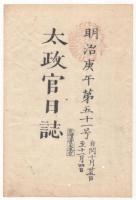 明治庚午第五十一号
自閏十月廿五日
至十一月四日
太政官日誌